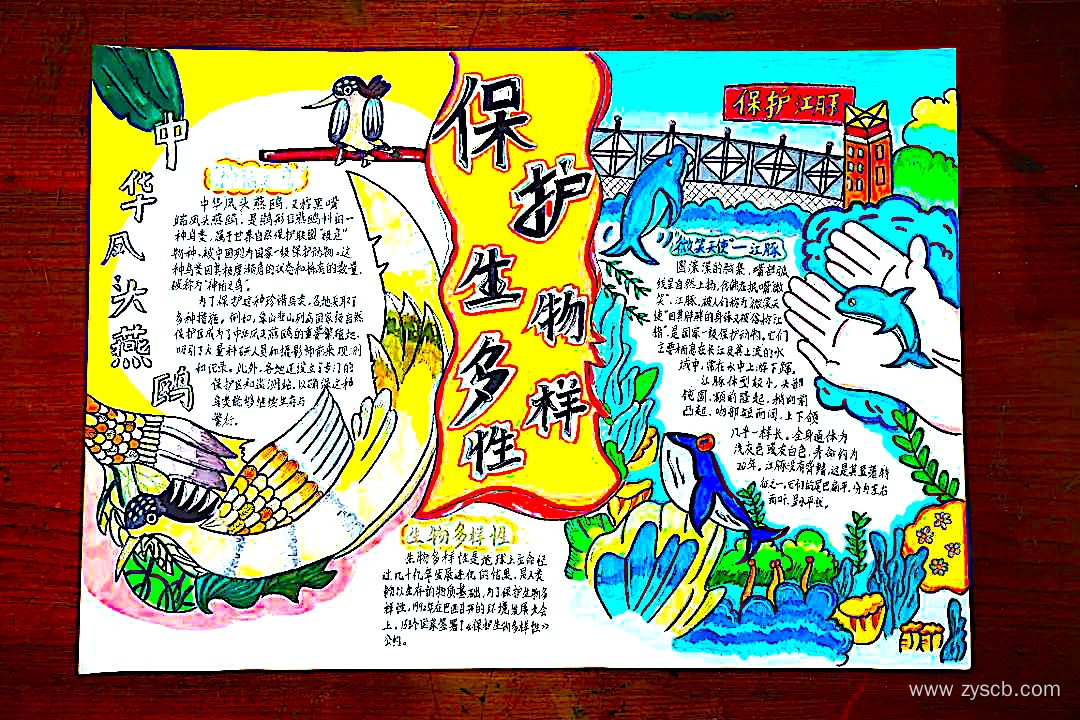 保护生物多样性
中华凤头燕鸥
中华凤头燕鸥,又称黑嘴
端凤头燕鸥,是鸻形目燕鸥科的一
种鸟类,属于世界自然保护联盟"极危"
物种,被中国列为国家一级保护动物。这
种鸟类因其极度濒危的状态和稀有的数量,
被称为"神话之鸟"。
为了保护这种珍稀鸟类,各地采取了
多种措施。例如,象山韭山列岛国家级自然
保护区成为了中华凤头燕鸥的重要繁殖地,
吸引了大量科研人员和摄影师前来观测
和记录。此外,各地还设立了专门的
保护区和监测站,以确保这种
鸟类能够继续生存与
繁衍。
生物多样性
生物多样性是地球上生命经
过几十亿年发展进化的结果,是人类
赖以生存的物质基础,为了保护生物多
样性,1992年在巴西召开的环境发展大会
上,153个国家签署了《保护生物多样性》
公约。
保护江豚
"微笑天使"—江豚
圆滚滚的脑袋,嘴部弧
线呈自然上扬,仿佛在抿嘴微
笑"。江豚,被人们称为"微笑天
使"因其胖胖的身体又被俗称"江
猪",是国家一级保护动物。它们
主要栖息在长江及其上流的水
域中,常在水中上游下蹿。
江豚体型较小,头部
钝圆,额前隆起,稍向前
凸起,吻部短而阔,上下颌
几乎一样长。全身通体为
浅灰色或灰白色,寿命约为
20年。江豚没有背鳍,这是其显著特
征之一,它们的尾巴扁平,分为左右
两叶,呈水平状。
www.zyscb.com